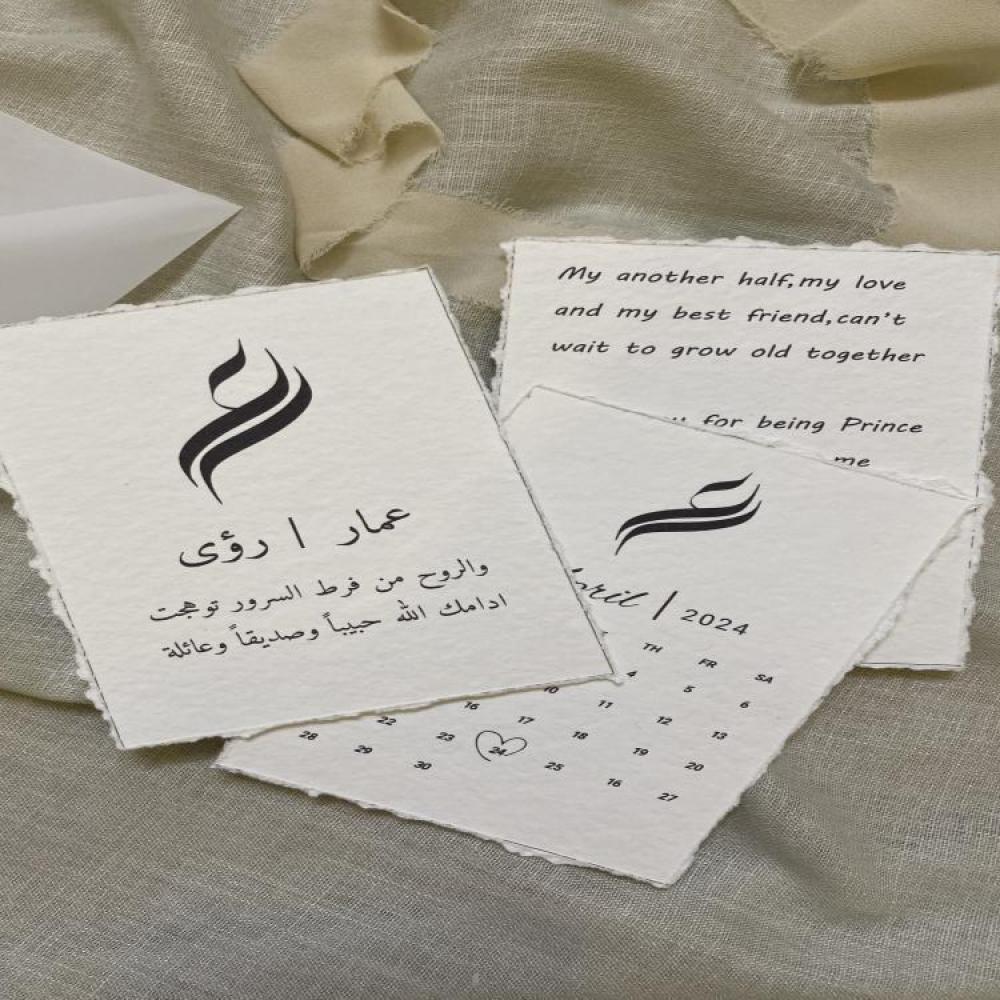 عمار | رؤى
والروح من فرط السرور توهجت
ادامك الله حبيباً وصديقاً وعائلة
My another half,my love
and my best friend,can't
wait to grow old together
for being Prince
me
| 2024
TH FR SA
4 5 6
10 11 12 13
16 17 18 19 20
22 23 24 25 16 27
28 29 30